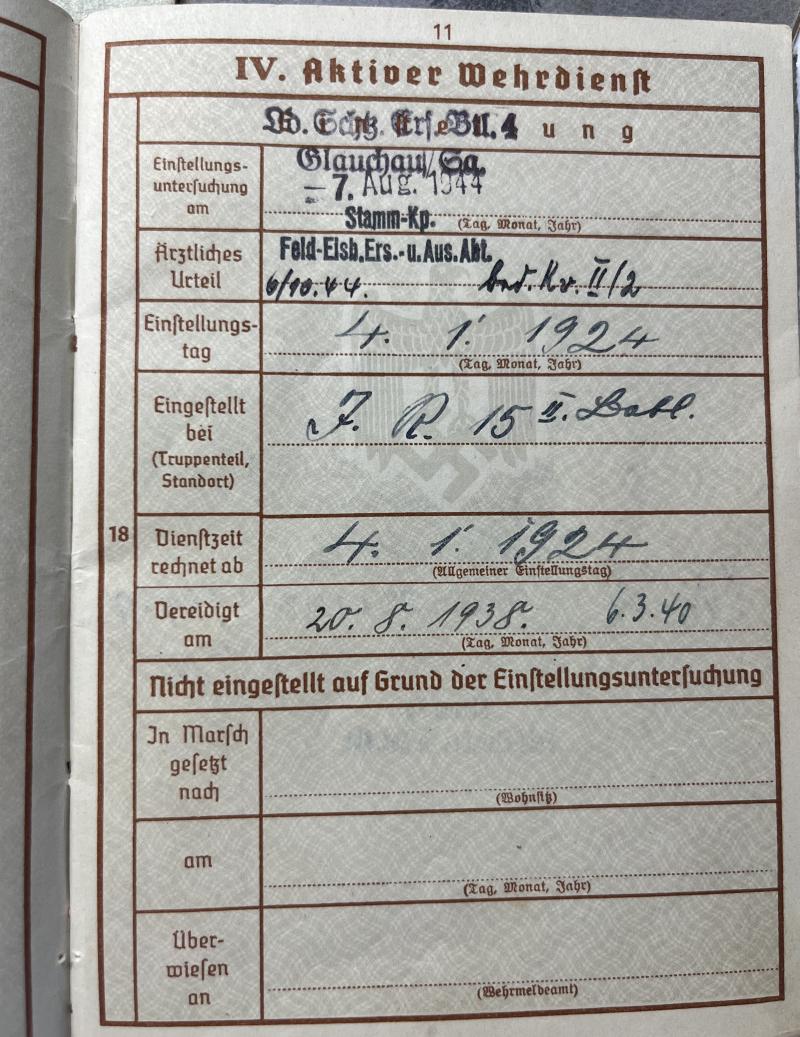 11
IV. Aktiver Wehrdienst
Ld. Schtz. Ers. Btl. 4
u n g
Einstellungs-
untersuchung
am
Glauchau/Sa.
-7. Aug. 1944
Stamm-Kp.
(Tag, Monat, Jahr)
Ärztliches
Urteil
Feld-Eisb.Ers.-u.Aus.Abt.
6/10.44. bed. Kv. II/2
Einstellungs-
tag
4. 1. 1924
(Tag, Monat, Jahr)
Eingestellt
bei
(Truppenteil,
Standort)
J. R. 15 II. Batl.
18
Dienstzeit
rechnet ab
4. 1. 1924
(Allgemeiner Einstellungstag)
Vereidigt
am
20. 8. 1938. 6.3.40
(Tag, Monat, Jahr)
Nicht eingestellt auf Grund der Einstellungsuntersuchung
In Marsch
gesetzt
nach
(Wohnsitz)
am
(Tag, Monat, Jahr)
Über-
wiesen
an
(Wehrmeldeamt)